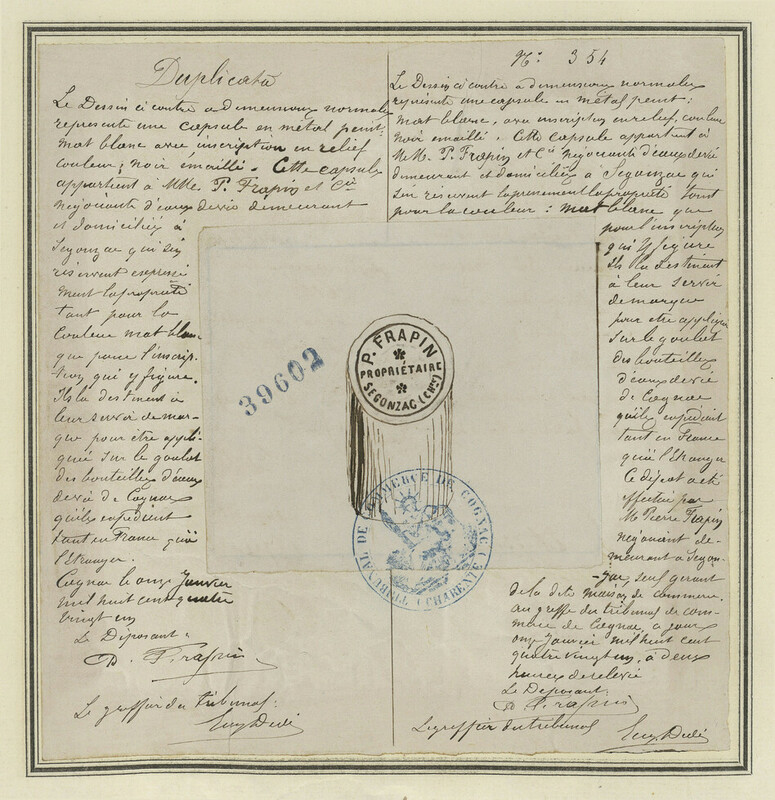 Duplicata
Le Dessin ci contre a dimensions normales
représente une capsule en métal peint:
mat blanc avec inscription en relief
couleur; noir émaillé. Cette capsule
appartient à MMe. P. Frapin et Cie
négociants d'eaux de vie demeurant
et domiciliés à
Segonzac qui s'en
réservent expressé
ment la propriété
tant pour la
couleur mat blanc
que pour l'inscrip-
tion qui y figure.
Ils la destinent à
leur servir de mar-
que pour être appli-
quée sur le goulot
des bouteilles d'eaux
de vie de Cognac
qu'ils expédient
tant en France qu'à
l'Etranger.
Cognac le onze Janvier
mil huit cent quatre
vingt un
Le Déposant.
P. Frapin
Le greffier du tribunal
N°. 354
Le Dessin ci contre a dimensions normales
représente une capsule en métal peint:
mat blanc, avec inscription en relief, couleur
noir émaillé. Cette capsule appartient à
MMe. P. Frapin et Cie négociants d'eaux de vie
demeurant et domiciliés à Segonzac qui
s'en réservent la propriété tant
pour la couleur: mat blanc que
pour l'inscription
qui y figure
Ils la destinent
à leur servir
de marque
pour être appliquée
sur le goulot
des bouteilles
d'eaux de vie
de Cognac
qu'ils expédient
tant en France
qu'à l'Etranger
Ce dépot a été
effectué par
M. Pierre Frapin
négociant de-
meurant à Segon-
-zac, seul gérant
de la dite maison de commerce,
au greffe du tribunal de com-
merce de Cognac, ce jour
onze Janvier mil huit cent
quatre vingt un, à deux
heures de relevée
Le Déposant.
P. Frapin
Le greffier du tribunal
39602
P. FRAPIN
PROPRIÉTAIRE
SEGONZAC (Chte)
TRIBUNAL DE COMMERCE DE COGNAC (CHARENTE)